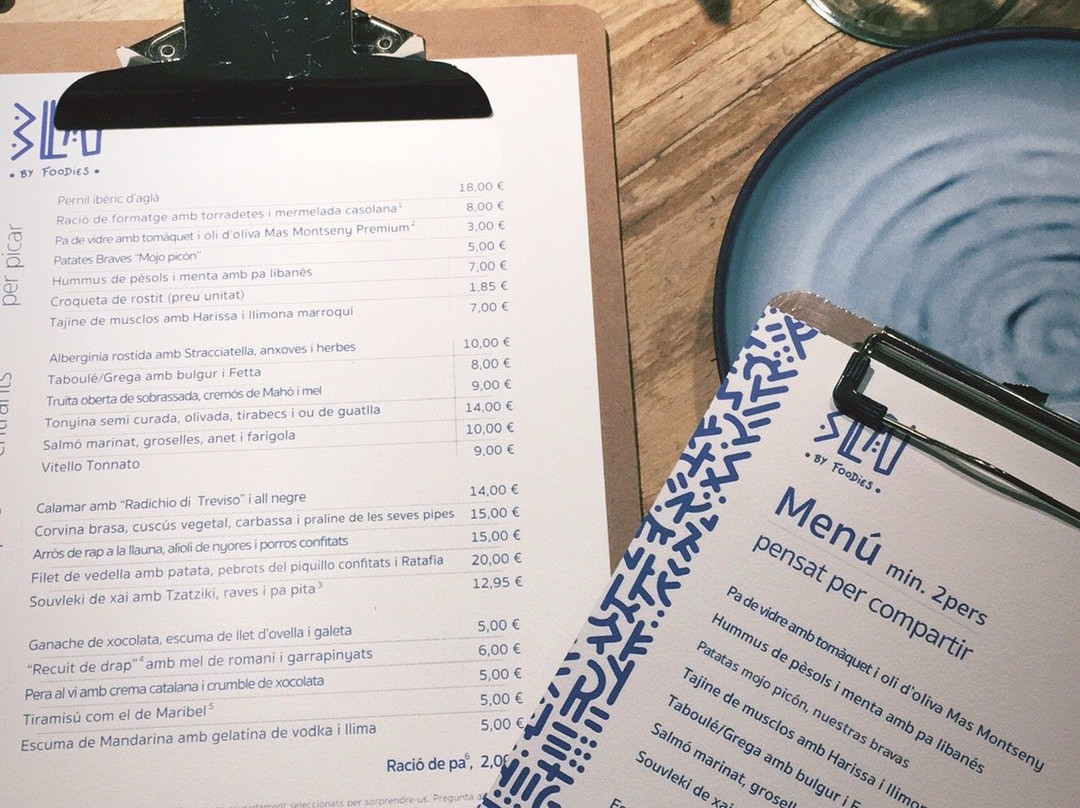 BY FOODIES
per picar
Pernil ibèric d'aglà 18,00 €
Ració de formatge amb torradetes i mermelada casolana¹ 8,00 €
Pa de vidre amb tomàquet i oli d'oliva Mas Montseny Premium² 3,00 €
Patates Braves "Mojo picón" 5,00 €
Hummus de pèsols i menta amb pa libanés 7,00 €
Croqueta de rostit (preu unitat) 1,85 €
Tajine de musclos amb Harissa i llimona marroquí 7,00 €
entrants
Alberginia rostida amb Stracciatella, anxoves i herbes 10,00 €
Taboulé/Grega amb bulgur i Fetta 8,00 €
Truita oberta de sobrassada, cremós de Mahó i mel 9,00 €
Tonyina semi curada, olivada, tirabecs i ou de guatlla 14,00 €
Salmó marinat, groselles, anet i farigola 10,00 €
Vitello Tonnato 9,00 €
Calamar amb "Radichio di Treviso" i all negre 14,00 €
Corvina brasa, cuscús vegetal, carbassa i praline de les seves pipes 15,00 €
Arrós de rap a la llauna, alioli de nyores i porros confitats 15,00 €
Filet de vedella amb patata, pebrots del piquillo confitats i Ratafia 20,00 €
Souvleki de xai amb Tzatziki, raves i pa pita³ 12,95 €
Ganache de xocolata, escuma de llet d'ovella i galeta 5,00 €
"Recuit de drap"⁴ amb mel de romaní i garrapinyats 6,00 €
Pera al vi amb crema catalana i crumble de xocolata 5,00 €
Tiramisú com el de Maribel⁵ 5,00 €
Escuma de Mandarina amb gelatina de vodka i llima 5,00 €
Ració de pa⁶, 2,0
seleccionats per sorprendre-us. Pregunta
BY FOODIES
Menú min. 2pers
pensat per compartir
Pa de vidre amb tomàquet i oli d'oliva Mas Montseny
Hummus de pèsols i menta amb pa libanés
Patatas mojo picón, nuestras bravas
Tajine de musclos amb Harissa i llimon
Taboulé/Grega amb bulgur i F
Salmó marinat, grosel
Souvleki de xai